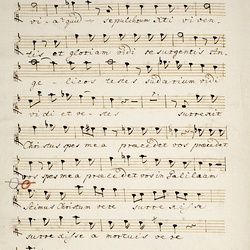 vi-a quid - sepulchrum xti viven
tis et gloriam vidi resurgentis An-
ge - licos testes sudarium vidi
vidi et ves - tes surrexit
Christus spes mea praecedet vos praecedet
vos spes mea praecedet vos in Galilaeam
Scimus Christum vere surrexisse
surrexisse a mortuis vere